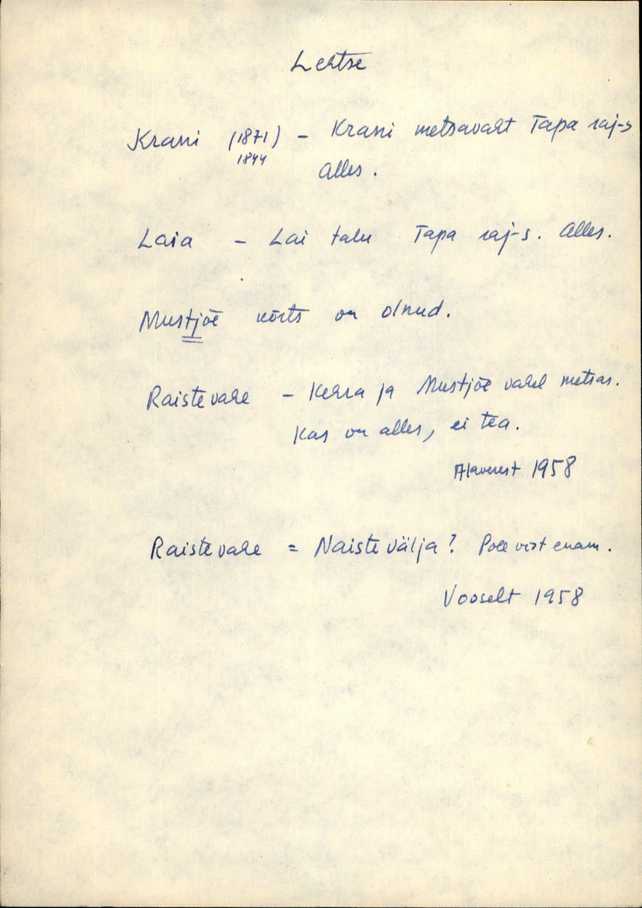 Lehtse
Krani (1871) – Krani metsavaht Tapa raj-s
1844
Alles.
Laia – Lai talu Tapa raj-s. Alles.
Mustjõe kõrts on olnud.
Raistevahe – Kehra ja Mustjõe vahel metsas.
Kas on alles, ei tea.
Alaverest 1958
Raistevahe = Naistevälja? Pole vist enam.
Vooselt 1958